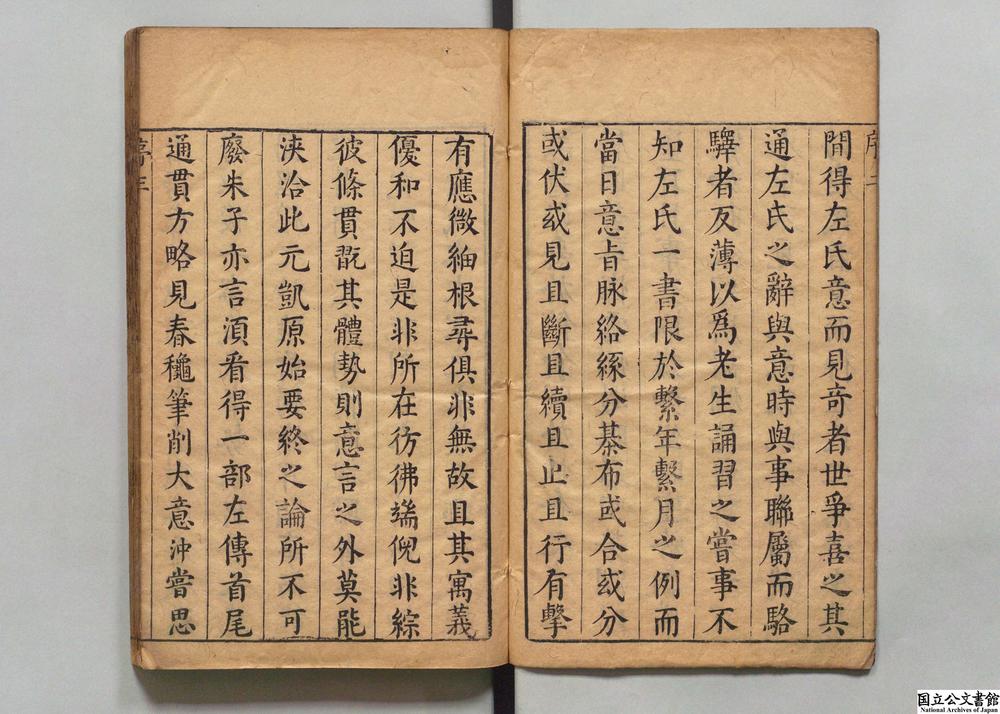 序二
間得左氏意而見奇者世爭喜之其
通左氏之辭與意時與事聯屬而駱
驛者反薄以爲老生誦習之嘗事不
知左氏一書限於繫年繫月之例而
當日意旨脉絡綠分棊布或合或分
或伏或見且斷且續且止且行有擊
有應微紬根尋俱非無故且其寓義
優和不迫是非所在彷彿端倪非綜
彼條貫翫其體勢則意言之外莫能
浹洽此元凱原始要終之論所不可
廢朱子亦言須看得一部左傳首尾
通貫方略見春龝筆削大意沖嘗思
序三
国立公文書館
National Archives of Japan